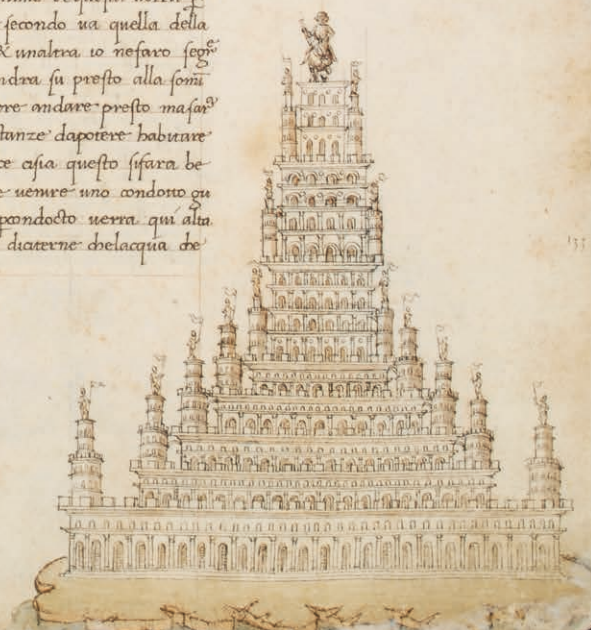 secondo ua quella della
& unaltra io nefaro segr̃e
ndra su presto alla som̃
ere andare presto mafar̃
tanze dapotere habitare
ce asia questo sifara be
e uenire uno condotto gu
pcondocto uerra qui alta
diciterne chelacqua che